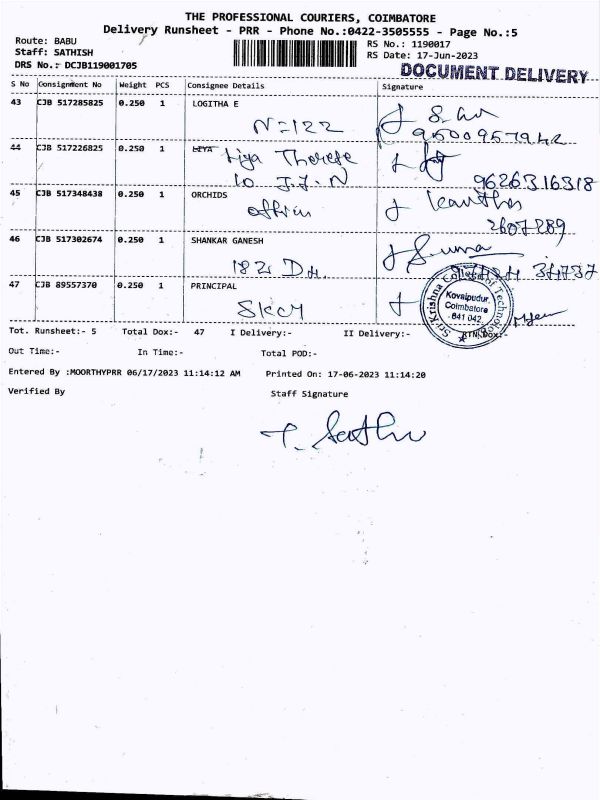 THE PROFESSIONAL COURIERS, COIMBATORE
Delivery Runsheet - PRR - Phone No.:0422-3505555 - Page No.:5
Route: BABU
RS No.: 1190017
Staff: SATHISH
RS Date: 17-Jun-2023
DRS No.: DCJB119001705
DOCUMENT DELIVERY
S No Consignment No Weight PCS Consignee Details Signature
43 CJB 517285825 0.250 1 LOGITHA E
N=122
9500957942
44 CJB 517226825 0.250 1 LIYA Liya Therese
10 J.J.N
9626316318
45 CJB 517348438 0.250 1 ORCHIDS
2607289
46 CJB 517302674 0.250 1 SHANKAR GANESH
Suma
182 
47 CJB 89557370 0.250 1 PRINCIPAL
Sri Krishna College of Technology
Kovaipudur,
Coimbatore
641 042.
Tot. Runsheet:- 5 Total Dox:- 47 I Delivery:- II Delivery:- RTN Dox:-
Out Time:- In Time:- Total POD:-
Entered By :MOORTHYPRR 06/17/2023 11:14:12 AM Printed On: 17-06-2023 11:14:20
Verified By Staff Signature